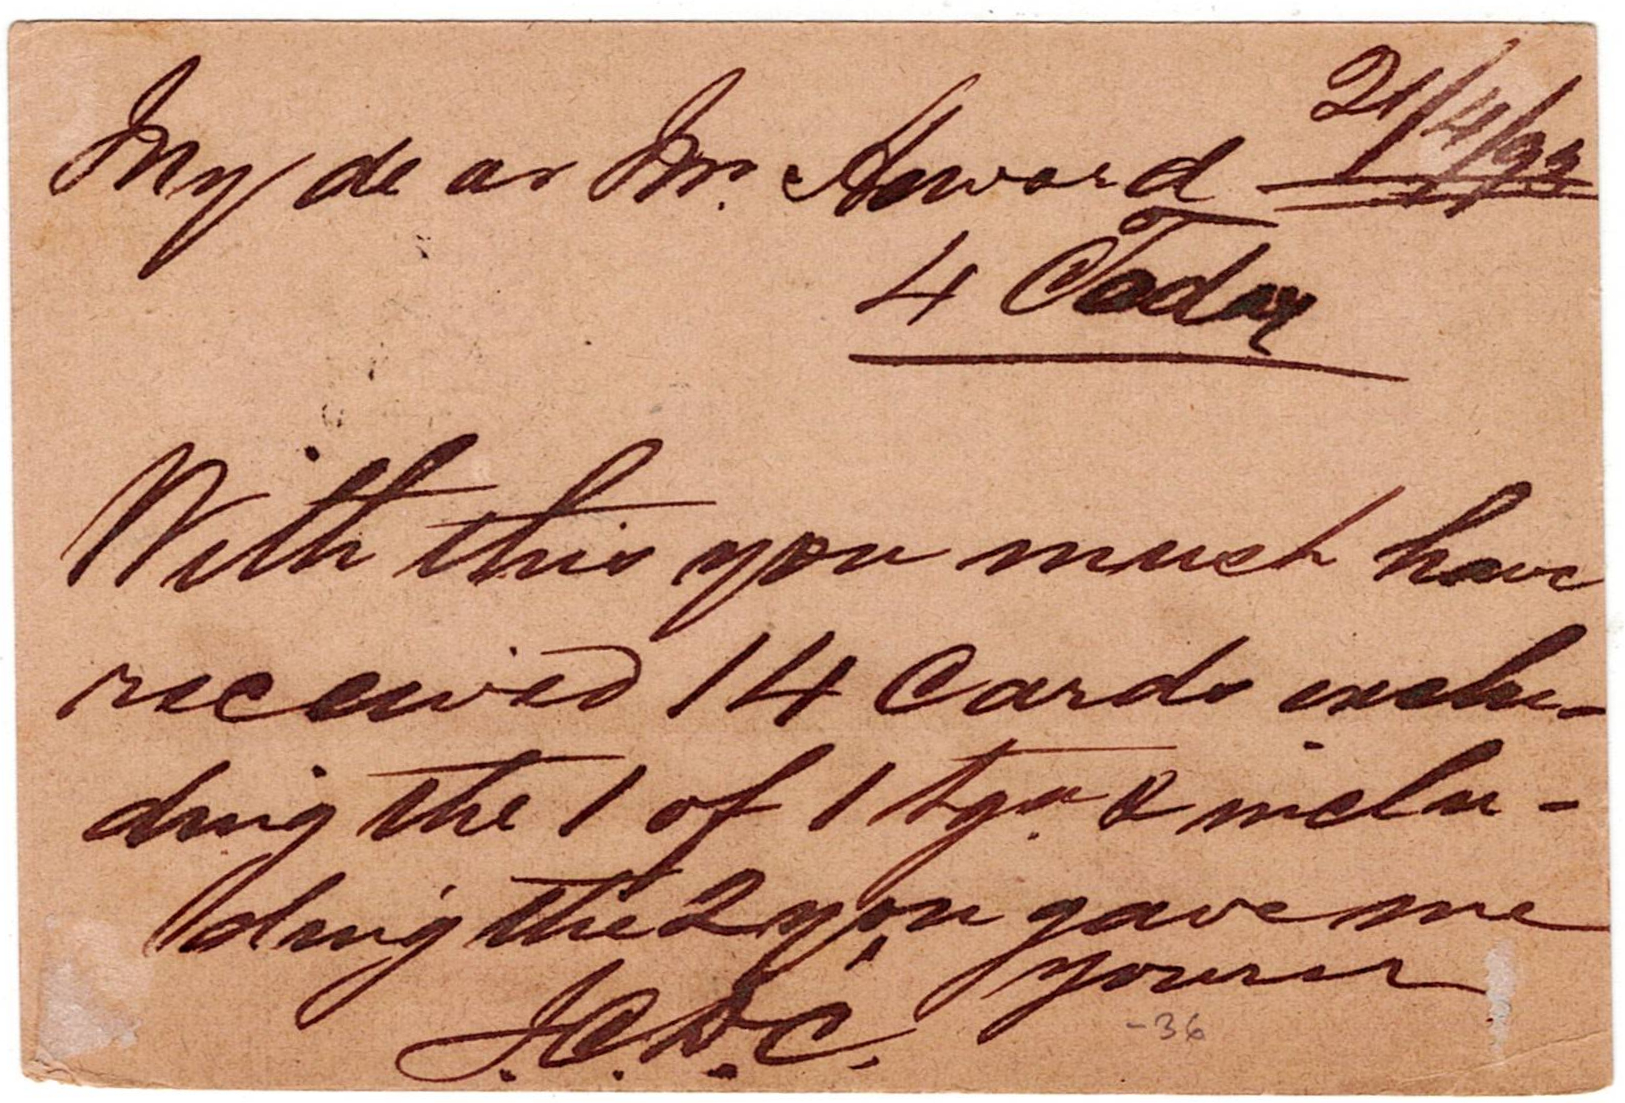 My dear Mr. Howard 21/4/93
4 Today
With this you must have
received 14 Cards exclu-
ding the 1 of 1 & inclu-
ding the 2 you gave me
yours
J.C.D.C.
-36